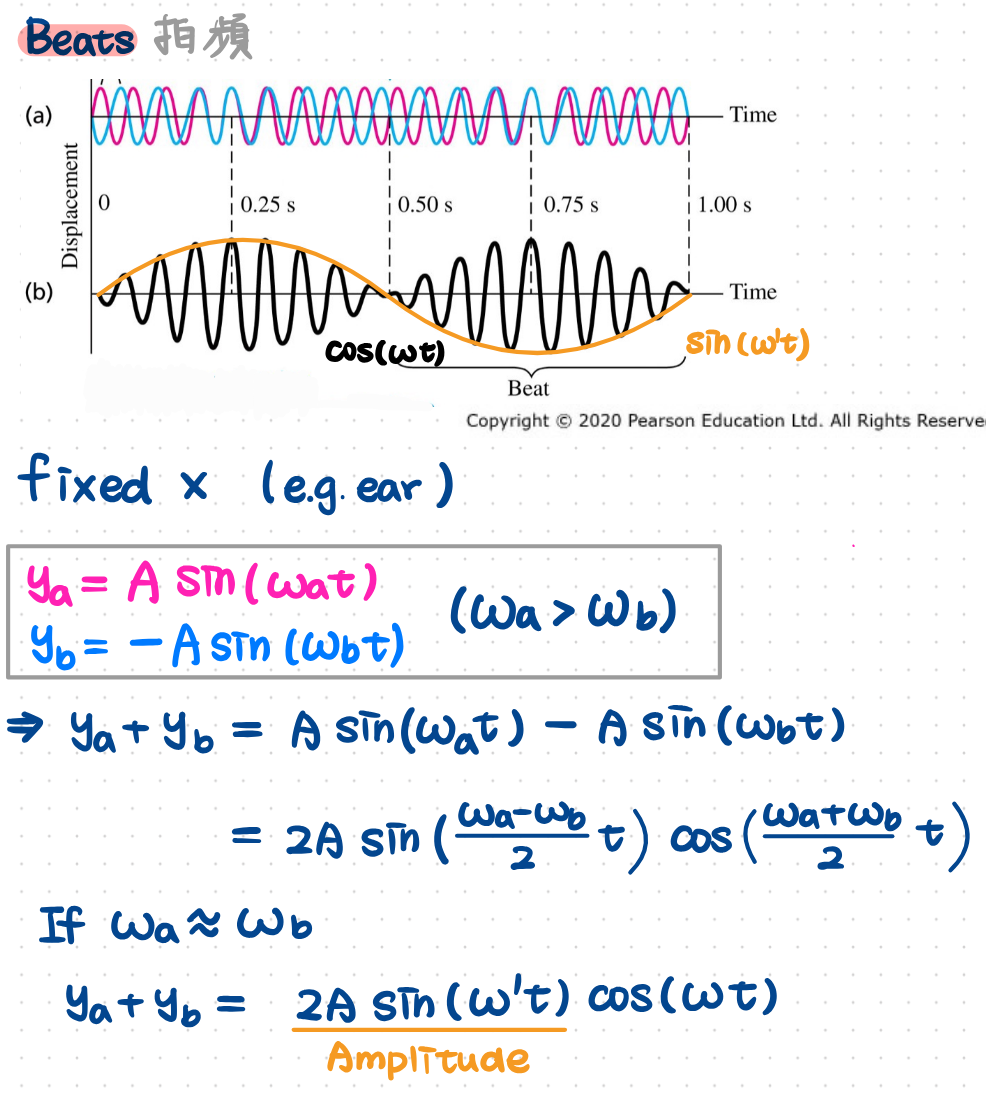 Beats 拍頻
(a)
Time
Displacement
0 0.25 s 0.50 s 0.75 s 1.00 s
(b)
Time
cos(ωt) sin(ω't)
Beat
Copyright © 2020 Pearson Education Ltd. All Rights Reserve
fixed x (e.g. ear)
yₐ = A sin(ωat)
y_b = −A sin(ωbt) (ωa > ωb)
⇒ yₐ + y_b = A sin(ωₐt) − A sin(ωbt)
= 2A sin((ωa−ωb)/2 t) cos((ωa+ωb)/2 t)
If ωa ≈ ωb
yₐ + y_b = 2A sin(ω't) cos(ωt)
Amplitude